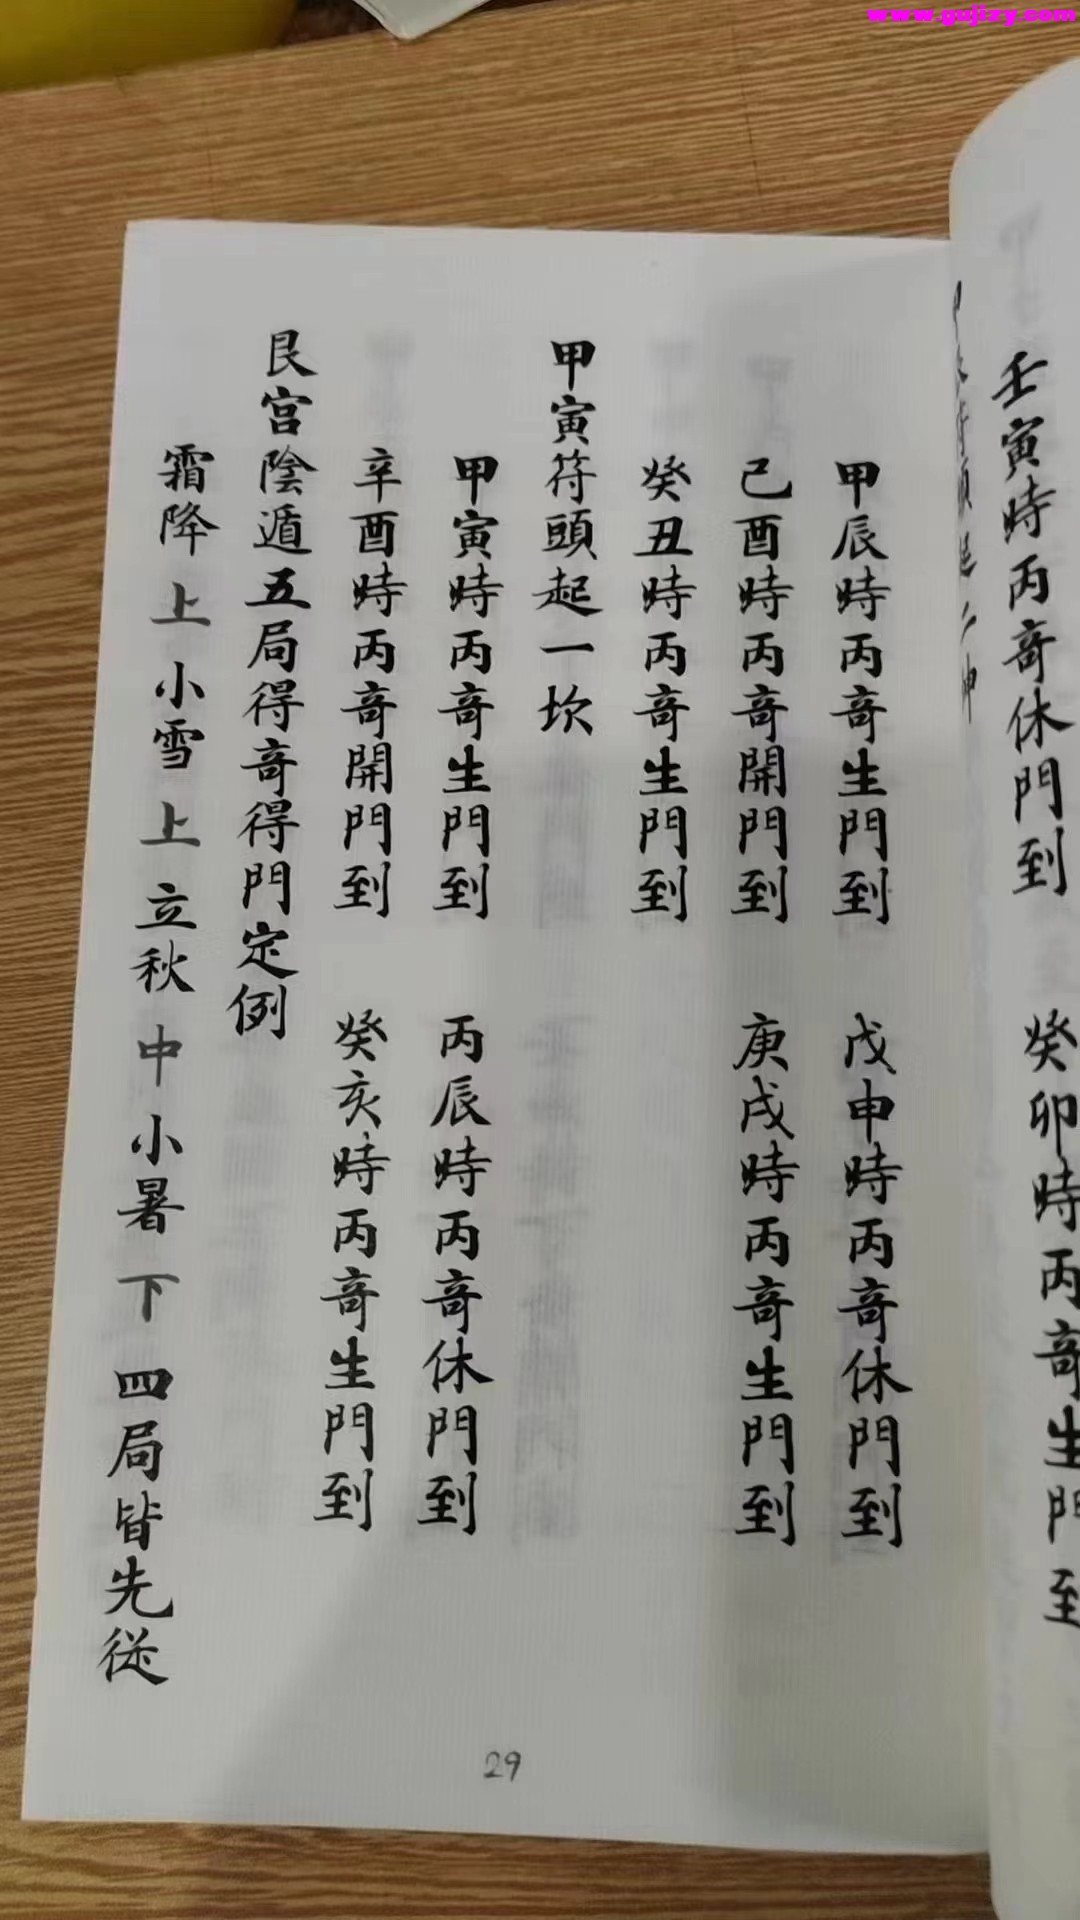 www.gujizy.com
壬寅時丙奇休門到 癸卯時丙奇生門到
甲辰時丙奇生門到 戊申時丙奇休門到
己酉時丙奇開門到 庚戌時丙奇生門到
癸丑時丙奇生門到
甲寅符頭起一坎
甲寅時丙奇生門到 丙辰時丙奇休門到
辛酉時丙奇開門到 癸亥時丙奇生門到
艮宮陰遁五局得奇得門定例
霜降上小雪上立秋中小暑下四局皆先從
29